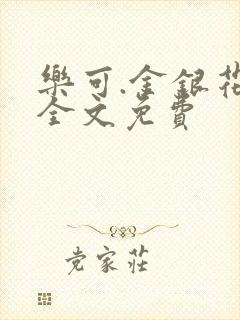 樂可.金銀花
全文免費
党家莊